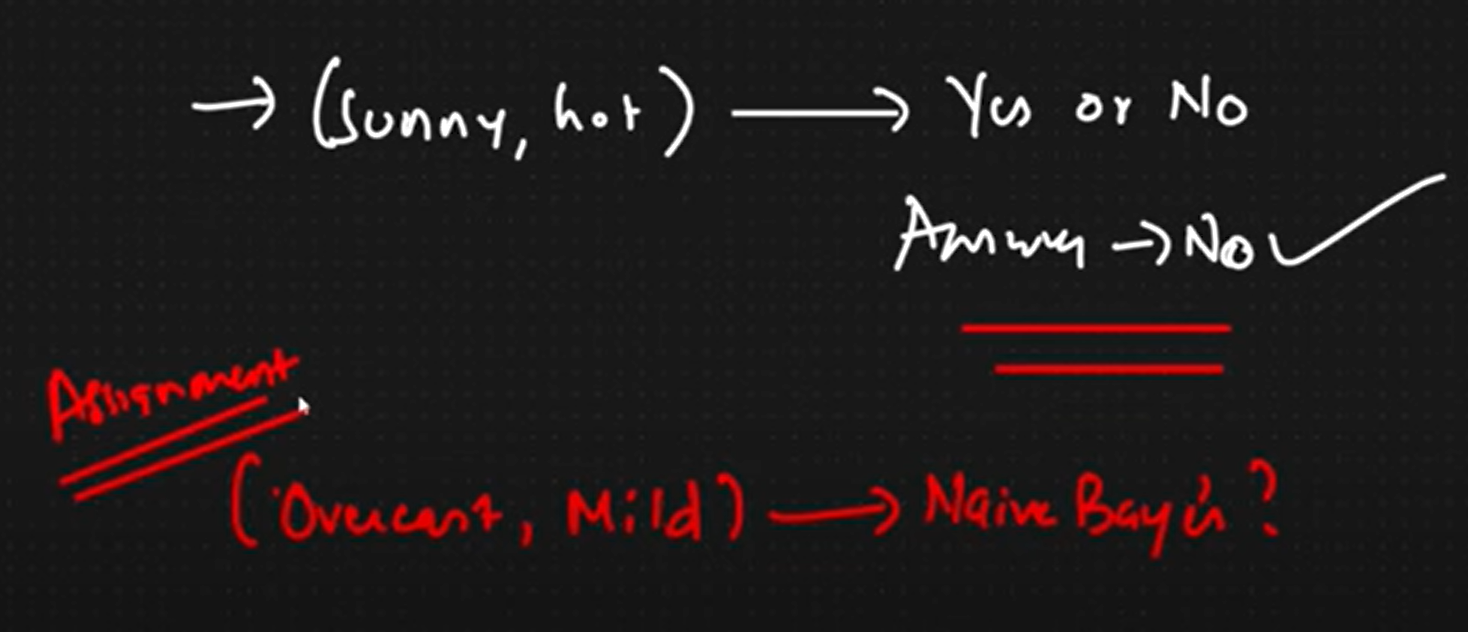 → (Sunny, hot) → Yes or No
Answer → No ✓
Assignment
(Overcast, Mild) → Naive Baye's?